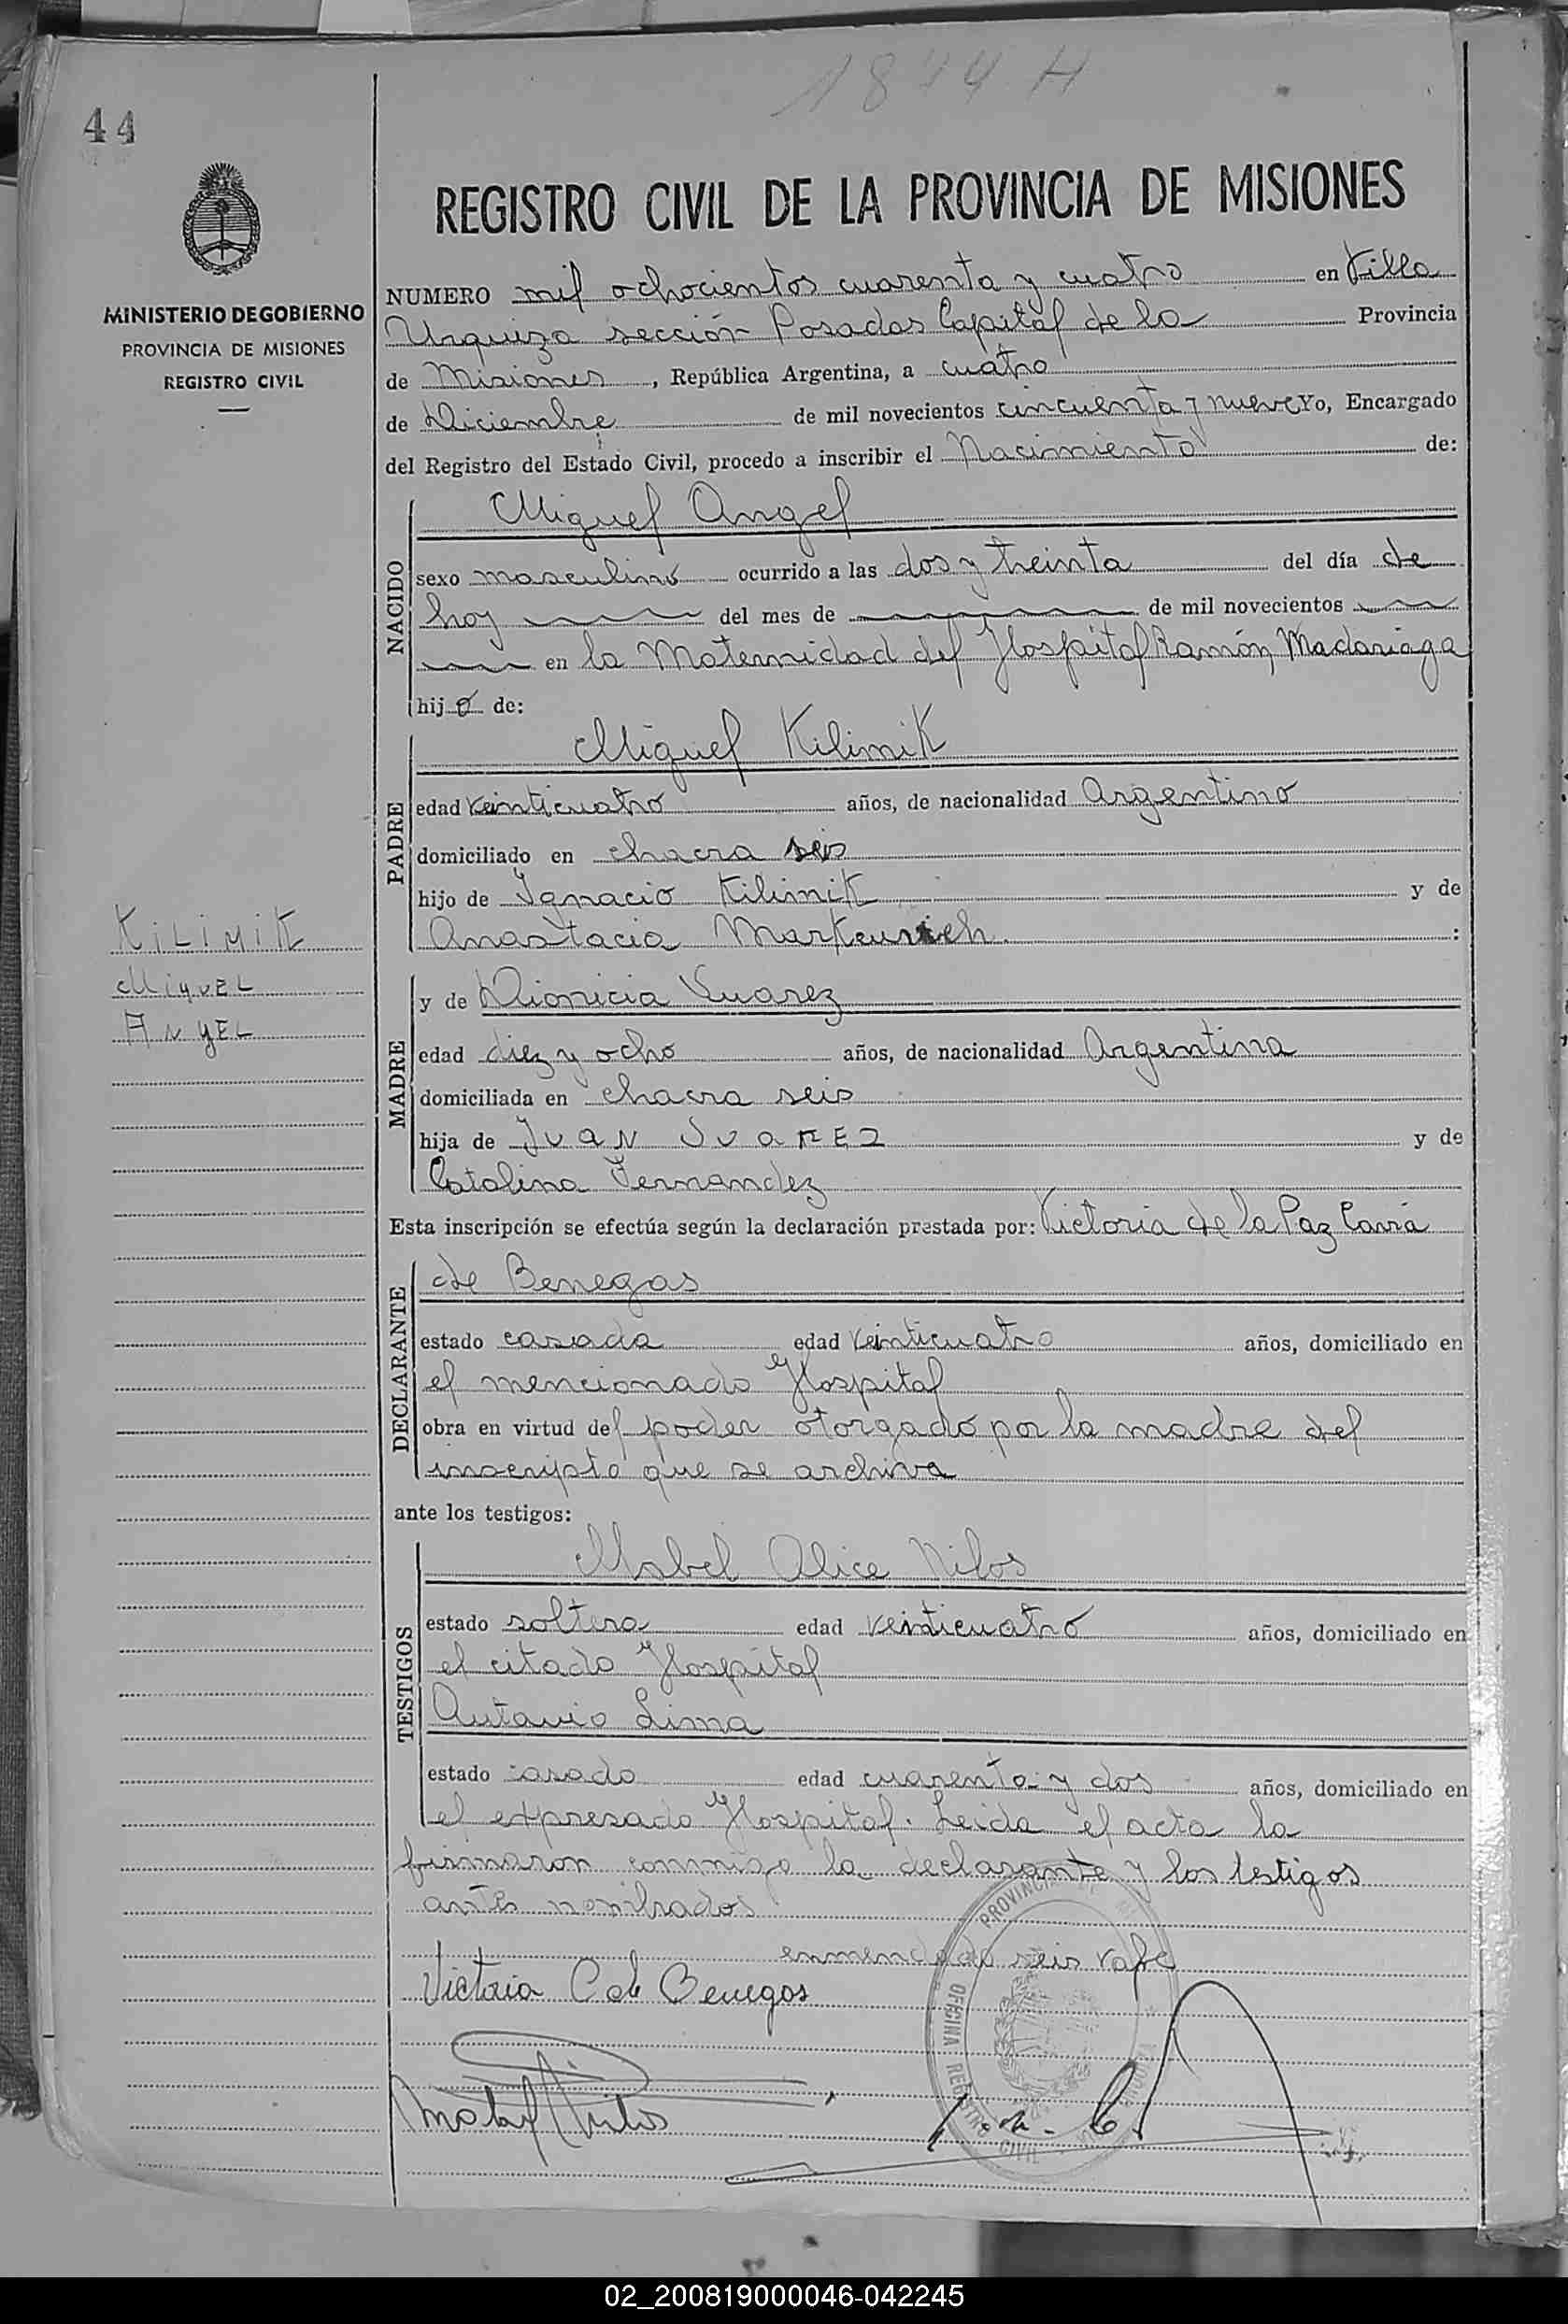 1844 H
44
REGISTRO CIVIL DE LA PROVINCIA DE MISIONES
MINISTERIO DE GOBIERNO
PROVINCIA DE MISIONES
REGISTRO CIVIL
NUMERO mil ochocientos cuarenta y cuatro en Villa
Urquiza sección Posadas Capital de la Provincia
de Misiones, República Argentina, a cuatro
de Diciembre de mil novecientos cincuenta y nueve Yo, Encargado
del Registro del Estado Civil, procedo a inscribir el Nacimiento de:
NACIDO
Miguel Angel
sexo masculino ocurrido a las dos y treinta del día de
hoy del mes de de mil novecientos
en la Maternidad del Hospital Ramón Madariaga
hijo de:
PADRE
Miguel Kilimik
edad veinticuatro años, de nacionalidad Argentino
domiciliado en chacra seis
hijo de Ignacio Kilimik y de
Anastacia :
KiLiMiK
MiguEL
ANgEL
MADRE
y de Dionicia Suarez
edad diez y ocho años, de nacionalidad Argentina
domiciliada en chacra seis
hija de JUAN SUAREZ y de
Catalina Fernandez
Esta inscripción se efectúa según la declaración prestada por: Victoria de la Paz
DECLARANTE
de Benegas
estado casada edad veinticuatro años, domiciliado en
el mencionado Hospital
obra en virtud del poder otorgado por la madre del
inscripto que se archiva
ante los testigos:
TESTIGOS
Mabel Alice Nilos
estado soltera edad veinticuatro años, domiciliado en
el citado Hospital
Autavio Lima
estado casado edad cuarenta y dos años, domiciliado en
el expresado Hospital. Leida el acta la
firmaron conmigo la declarante y los testigos
antes nombrados
enmendado seis vale
Victoria C de Benegas
PROVINCIA
OFICINA REGISTRO CIVIL
02_200819000046-042245